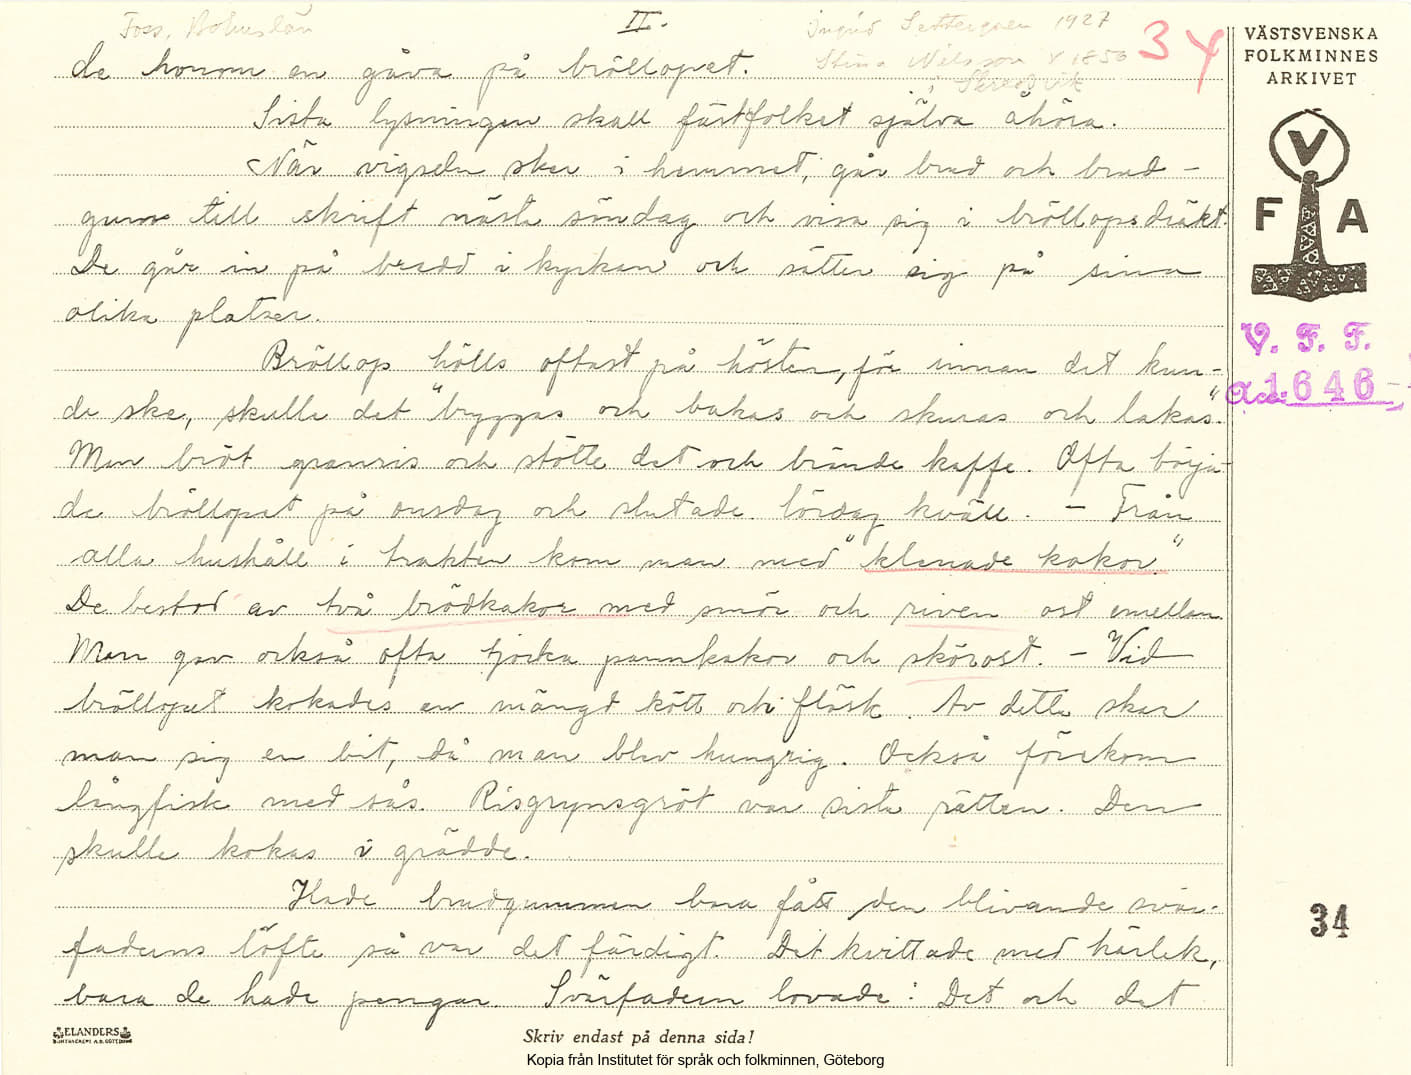 Foss, Bohuslän
II.
Ingrid Settergren 1927
Stina Nilsson f 1850
i Skredsvik
34
de honom en gåva på bröllopet.
Sista lysningen skall fästfolket själva åhöra.
När vigseln sker i hemmet, går brud och brud-
gum till skrift nästa söndag och visa sig i bröllopsdräkt.
De går in på bredd i kyrkan och sätter sig på sina
olika platser.
Bröllop hölls oftast på hösten, för innan det kun-
de ske, skulle det "bryggas och bakas och skuras och lakas".
Man bröt granris och stötte det och brände kaffe. Ofta börja-
de bröllopet på onsdag och slutade lördag kväll. - Från
alla hushåll i trakten kom man med "klenade kakor."
De bestod av två brödkakor med smör och riven ost emellan.
Man gav också ofta tjocka pannkakor och skörost. - Vid
bröllopet kokades en mängd kött och fläsk. Av detta skar
man sig en bit, då man blev hungrig. Också förekom
långfisk med sås. Risgrynsgröt var sista rätten. Den
skulle kokas i grädde.
Hade brudgummen bara fått den blivande svär-
faderns löfte så var det färdigt. Det kvittade med kärlek,
bara de hade pengar. Svärfadern lovade: Det och det
VÄSTSVENSKA
FOLKMINNES
ARKIVET
V
F A
V. F. F.
1646
34
ELANDERS
Skriv endast på denna sida!
Kopia från Institutet för språk och folkminnen, Göteborg